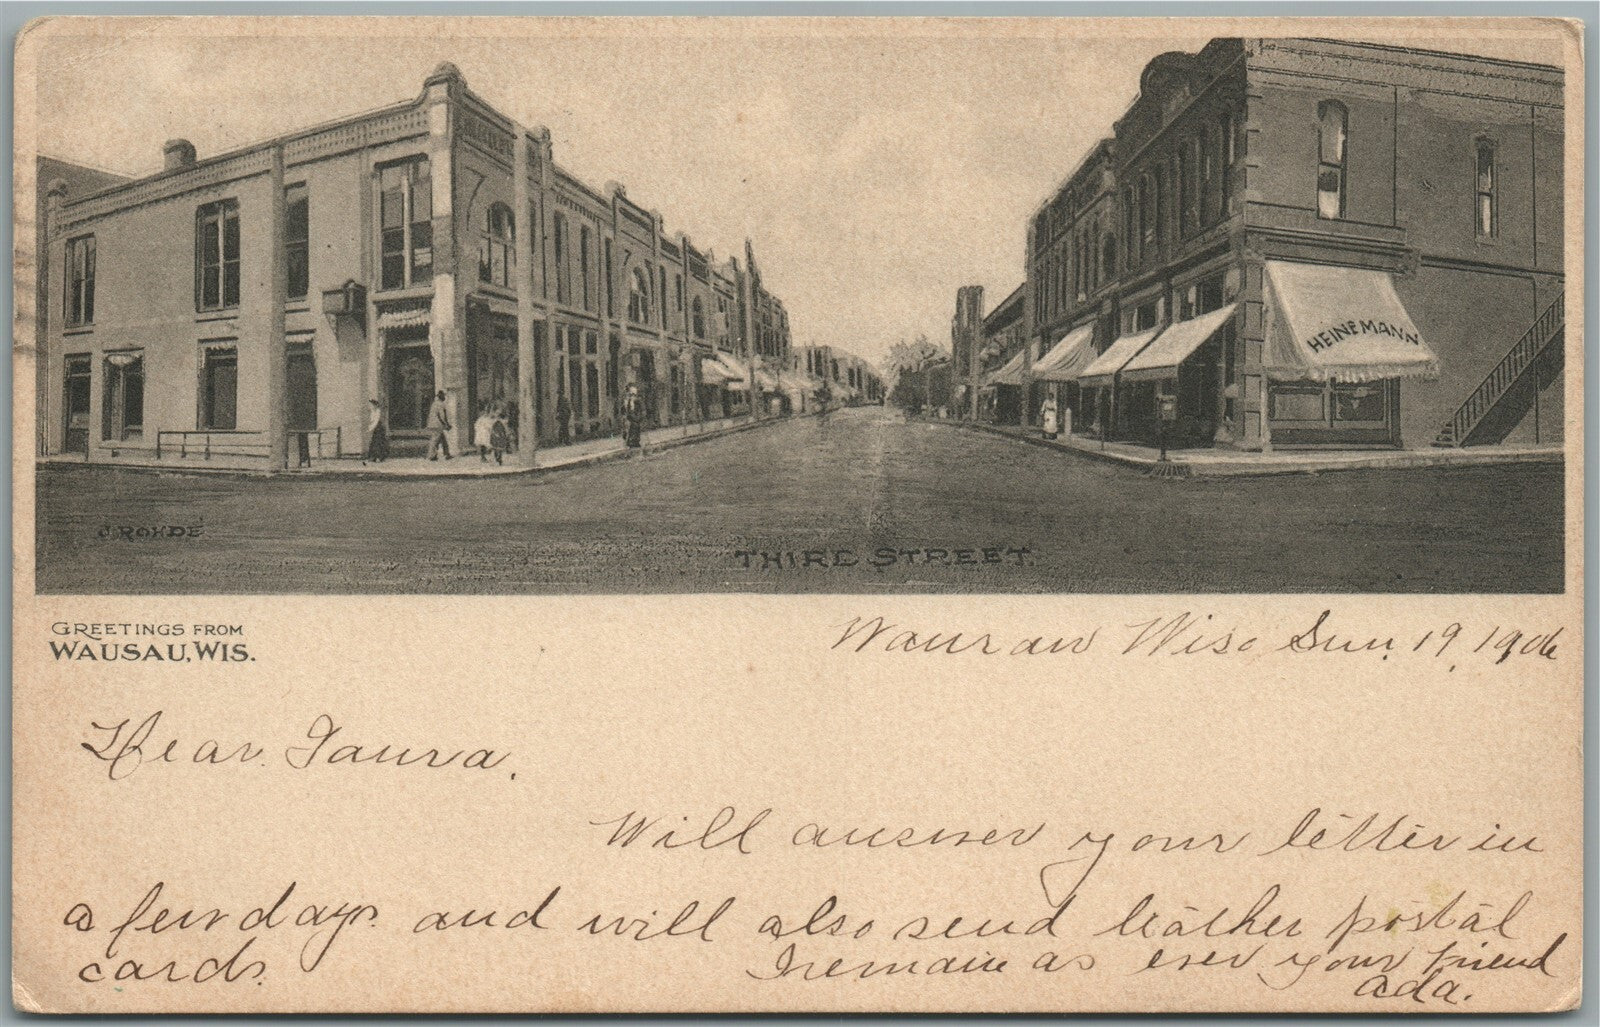 HEINEMANN
J. ROHDE
THIRD STREET.
GREETINGS FROM
WAUSAU, WIS.
Wausau Wis. Sun. 19, 1906
Dear Laura.
Will answer your letter in
a few days. and will also send leather postal
cards.
I remain as ever your friend
Ada.